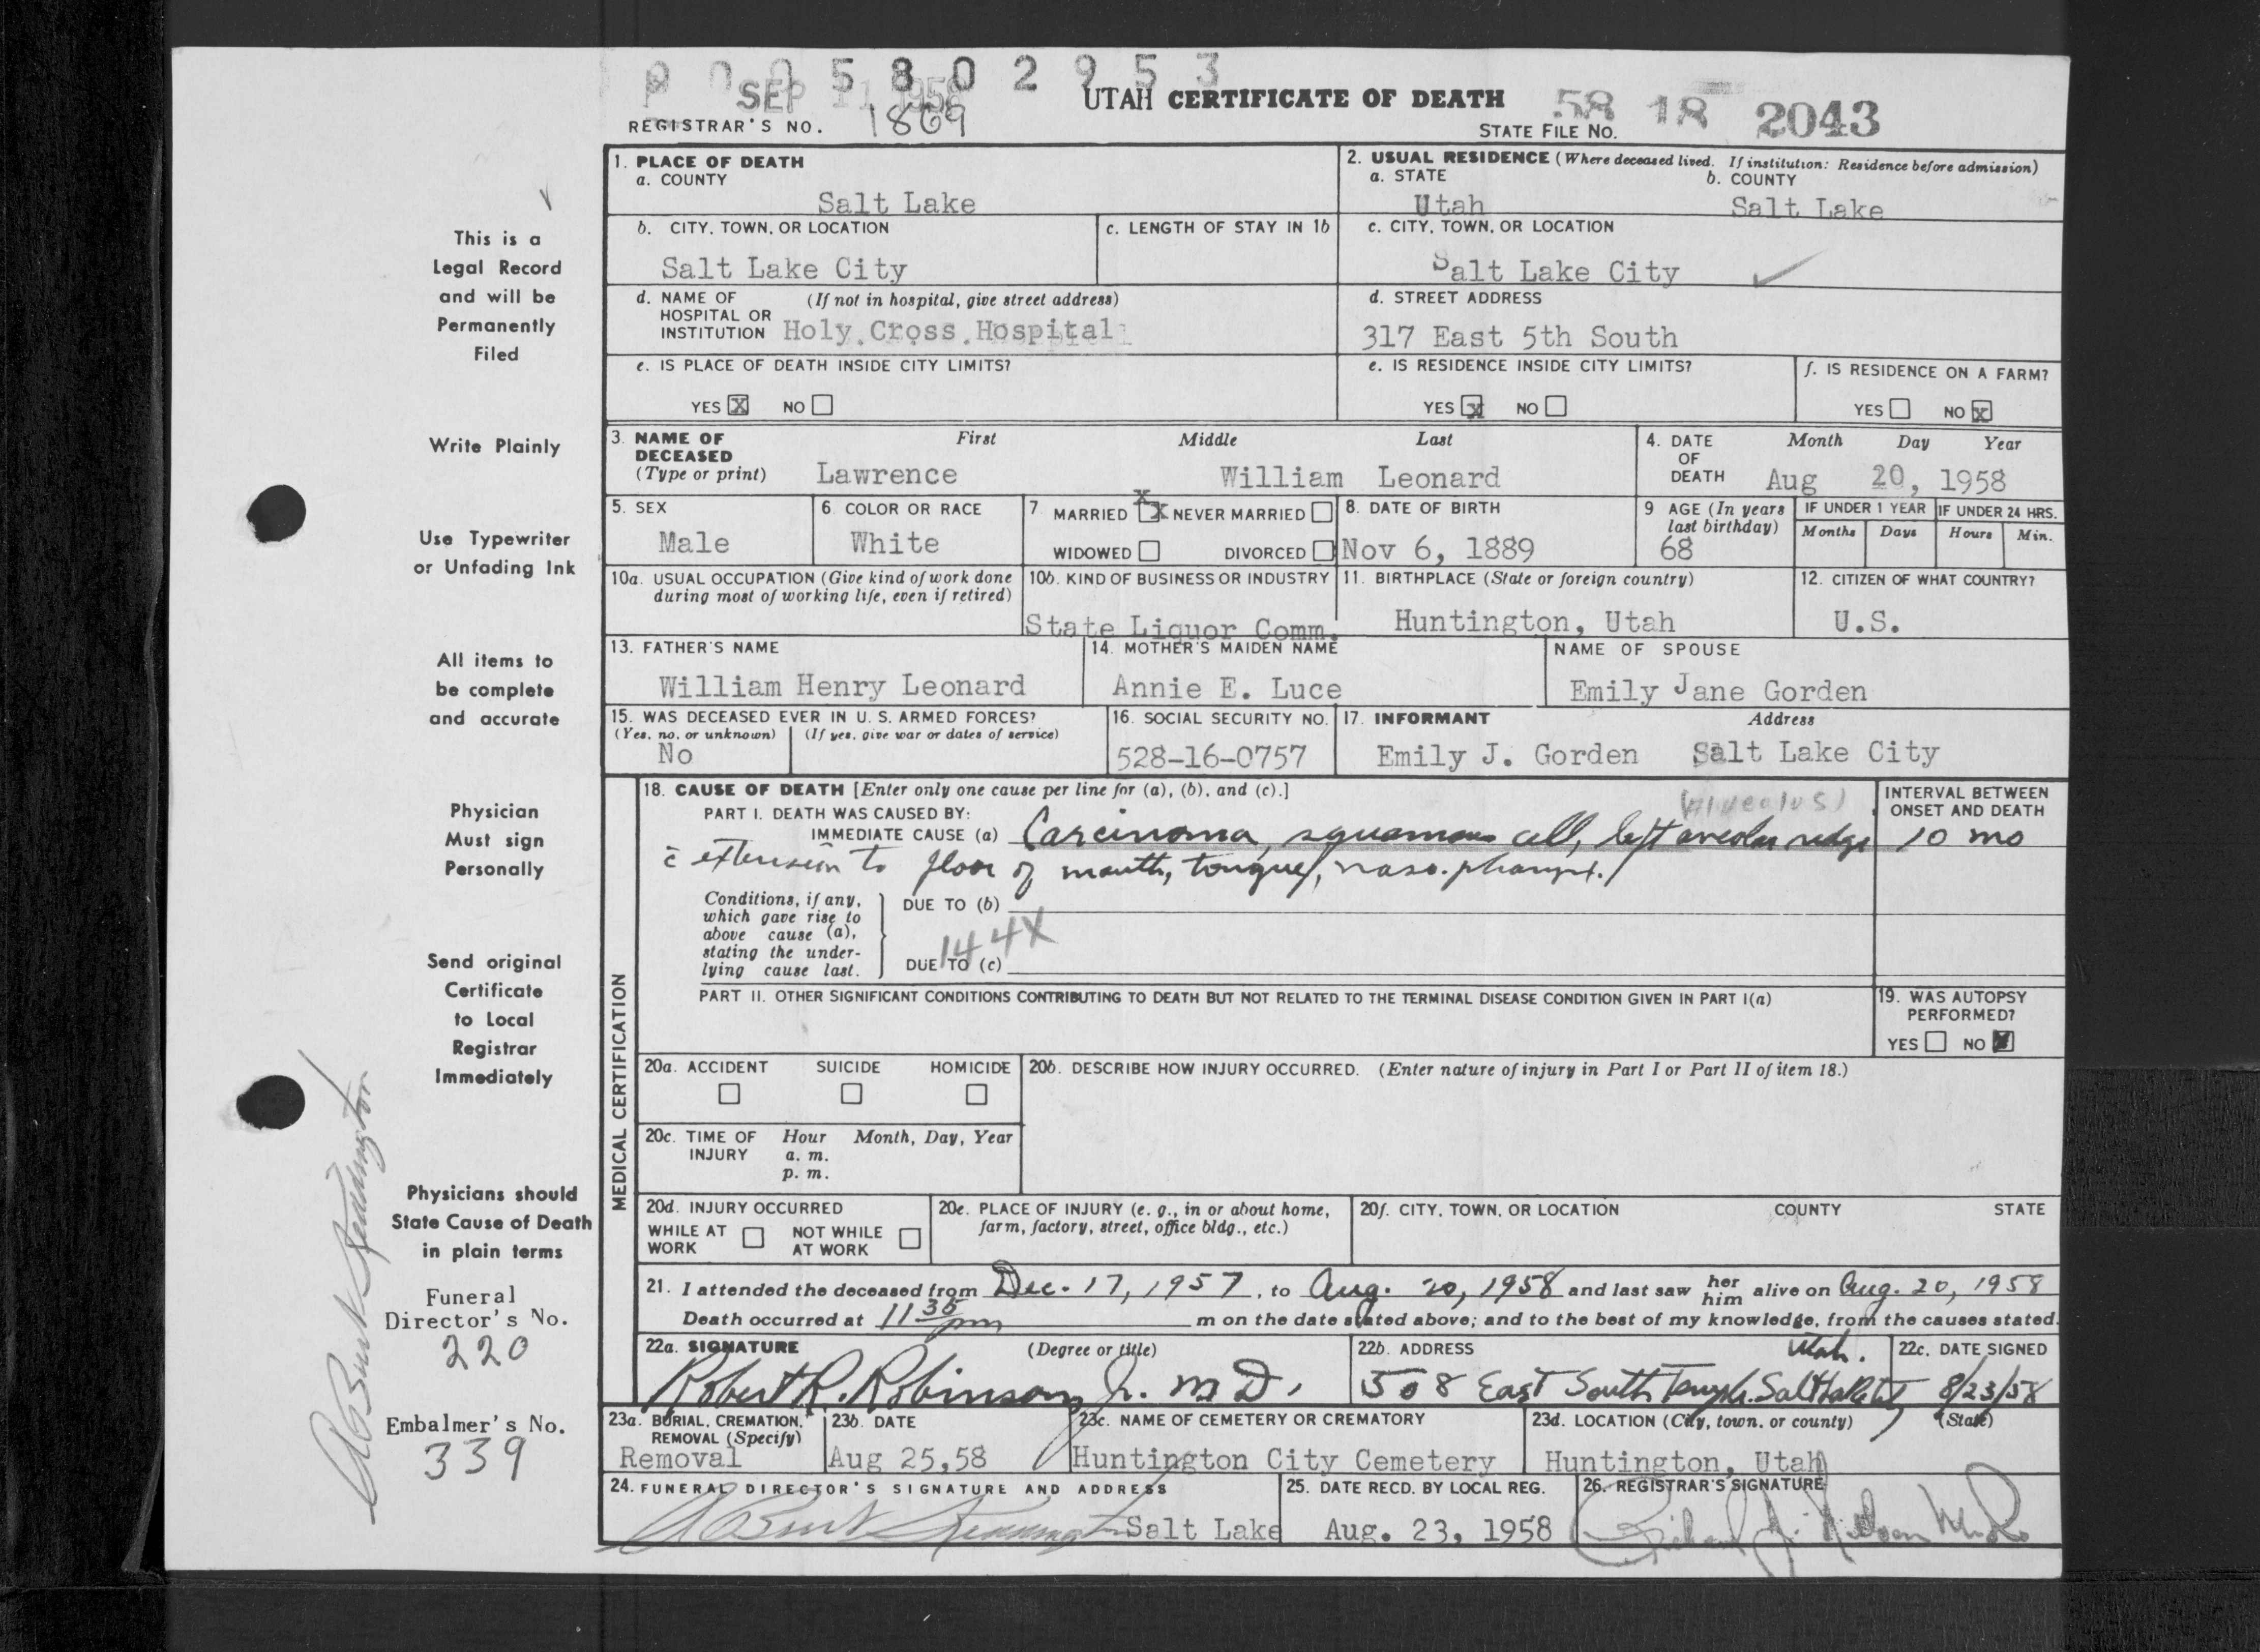 0 0 0 5 8 0 2 9 5 3
SEP 11 1958
UTAH CERTIFICATE OF DEATH
58 18 2043
REGISTRAR'S NO. 1869
STATE FILE NO.
1. PLACE OF DEATH
a. COUNTY
Salt Lake
2. USUAL RESIDENCE (Where deceased lived. If institution: Residence before admission)
a. STATE b. COUNTY
Utah Salt Lake
b. CITY, TOWN, OR LOCATION
Salt Lake City
c. LENGTH OF STAY IN 1b
c. CITY, TOWN, OR LOCATION
Salt Lake City
d. NAME OF (If not in hospital, give street address)
HOSPITAL OR
INSTITUTION Holy Cross Hospital
d. STREET ADDRESS
317 East 5th South
e. IS PLACE OF DEATH INSIDE CITY LIMITS?
YES X NO
e. IS RESIDENCE INSIDE CITY LIMITS?
YES X NO
f. IS RESIDENCE ON A FARM?
YES NO X
3. NAME OF First Middle Last
DECEASED
(Type or print) Lawrence William Leonard
4. DATE Month Day Year
OF
DEATH Aug 20, 1958
5. SEX
Male
6. COLOR OR RACE
White
7. MARRIED X NEVER MARRIED
WIDOWED DIVORCED
8. DATE OF BIRTH
Nov 6, 1889
9 AGE (In years
last birthday)
68
IF UNDER 1 YEAR
Months Days
IF UNDER 24 HRS.
Hours Min.
10a. USUAL OCCUPATION (Give kind of work done
during most of working life, even if retired)
10b. KIND OF BUSINESS OR INDUSTRY
State Liquor Comm.
11. BIRTHPLACE (State or foreign country)
Huntington, Utah
12. CITIZEN OF WHAT COUNTRY?
U.S.
13. FATHER'S NAME
William Henry Leonard
14. MOTHER'S MAIDEN NAME
Annie E. Luce
NAME OF SPOUSE
Emily Jane Gorden
15. WAS DECEASED EVER IN U. S. ARMED FORCES?
(Yes, no, or unknown) (If yes, give war or dates of service)
No
16. SOCIAL SECURITY NO.
528-16-0757
17. INFORMANT Address
Emily J. Gorden Salt Lake City
MEDICAL CERTIFICATION
18. CAUSE OF DEATH [Enter only one cause per line for (a), (b), and (c).]
PART I. DEATH WAS CAUSED BY:
(alveolus)
IMMEDIATE CAUSE (a) Carcinoma, squamous cell, left aveolar ridge
c̄ extension to floor of mouth, tongue, naso-pharynx.
INTERVAL BETWEEN
ONSET AND DEATH
10 mo
Conditions, if any,
which gave rise to
above cause (a),
stating the under-
lying cause last.
DUE TO (b)
144X
DUE TO (c)
PART II. OTHER SIGNIFICANT CONDITIONS CONTRIBUTING TO DEATH BUT NOT RELATED TO THE TERMINAL DISEASE CONDITION GIVEN IN PART I(a)
19. WAS AUTOPSY
PERFORMED?
YES NO X
20a. ACCIDENT SUICIDE HOMICIDE
20b. DESCRIBE HOW INJURY OCCURRED. (Enter nature of injury in Part I or Part II of item 18.)
20c. TIME OF Hour Month, Day, Year
INJURY a. m.
p. m.
20d. INJURY OCCURRED
WHILE AT NOT WHILE
WORK AT WORK
20e. PLACE OF INJURY (e. g., in or about home,
farm, factory, street, office bldg., etc.)
20f. CITY, TOWN, OR LOCATION COUNTY STATE
21. I attended the deceased from Dec. 17, 1957, to Aug. 20, 1958 and last saw her him alive on Aug. 20, 1958
Death occurred at 11 35 pm m on the date stated above; and to the best of my knowledge, from the causes stated.
22a. SIGNATURE (Degree or title)
Robert R. Robinson Jr. M D.
22b. ADDRESS Utah.
508 East South Temple. Salt Lake City
22c. DATE SIGNED
8/23/58
23a. BURIAL, CREMATION,
REMOVAL (Specify)
Removal
23b. DATE
Aug 25,58
23c. NAME OF CEMETERY OR CREMATORY
Huntington City Cemetery
23d. LOCATION (City, town, or county) (State)
Huntington, Utah
24. FUNERAL DIRECTOR'S SIGNATURE AND ADDRESS
Salt Lake
25. DATE RECD. BY LOCAL REG.
Aug. 23, 1958
26. REGISTRAR'S SIGNATURE
This is a
Legal Record
and will be
Permanently
Filed
Write Plainly
Use Typewriter
or Unfading Ink
All items to
be complete
and accurate
Physician
Must sign
Personally
Send original
Certificate
to Local
Registrar
Immediately
Physicians should
State Cause of Death
in plain terms
Funeral
Director's No.
220
Embalmer's No.
339